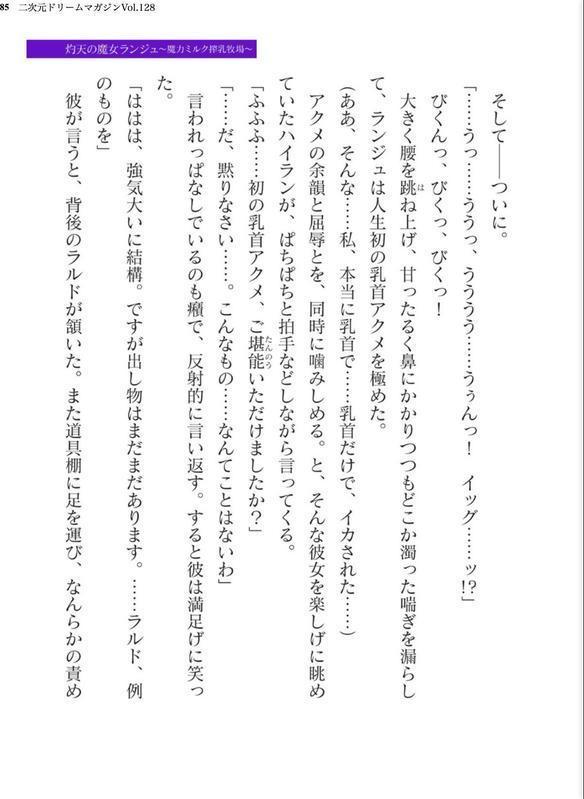 85 二次元ドリームマガジンVol.128
灼天の魔女ランジュ~魔力ミルク搾乳牧場~
そして――ついに。
「……うっ……ううっ、うううう……うぅんっ! イッグ……ッ!?」
びくんっ、びくっ、びくっ!
大きく腰を跳(は)ね上げ、甘ったるく鼻にかかりつつもどこか濁った喘ぎを漏らし
て、ランジュは人生初の乳首アクメを極めた。
(ああ、そんな……私、本当に乳首で……乳首だけで、イカされた……)
アクメの余韻と屈辱とを、同時に噛みしめる。と、そんな彼女を楽しげに眺め
ていたハイランが、ぱちぱちと拍手などしながら言ってくる。
「ふふふ……初の乳首アクメ、ご堪能(たんのう)いただけましたか?」
「……だ、黙りなさい……。こんなもの……なんてことはないわ」
言われっぱなしでいるのも癪で、反射的に言い返す。すると彼は満足げに笑っ
た。
「ははは、強気大いに結構。ですが出し物はまだまだあります。……ラルド、例
のものを」
彼が言うと、背後のラルドが頷いた。また道具棚に足を運び、なんらかの責め